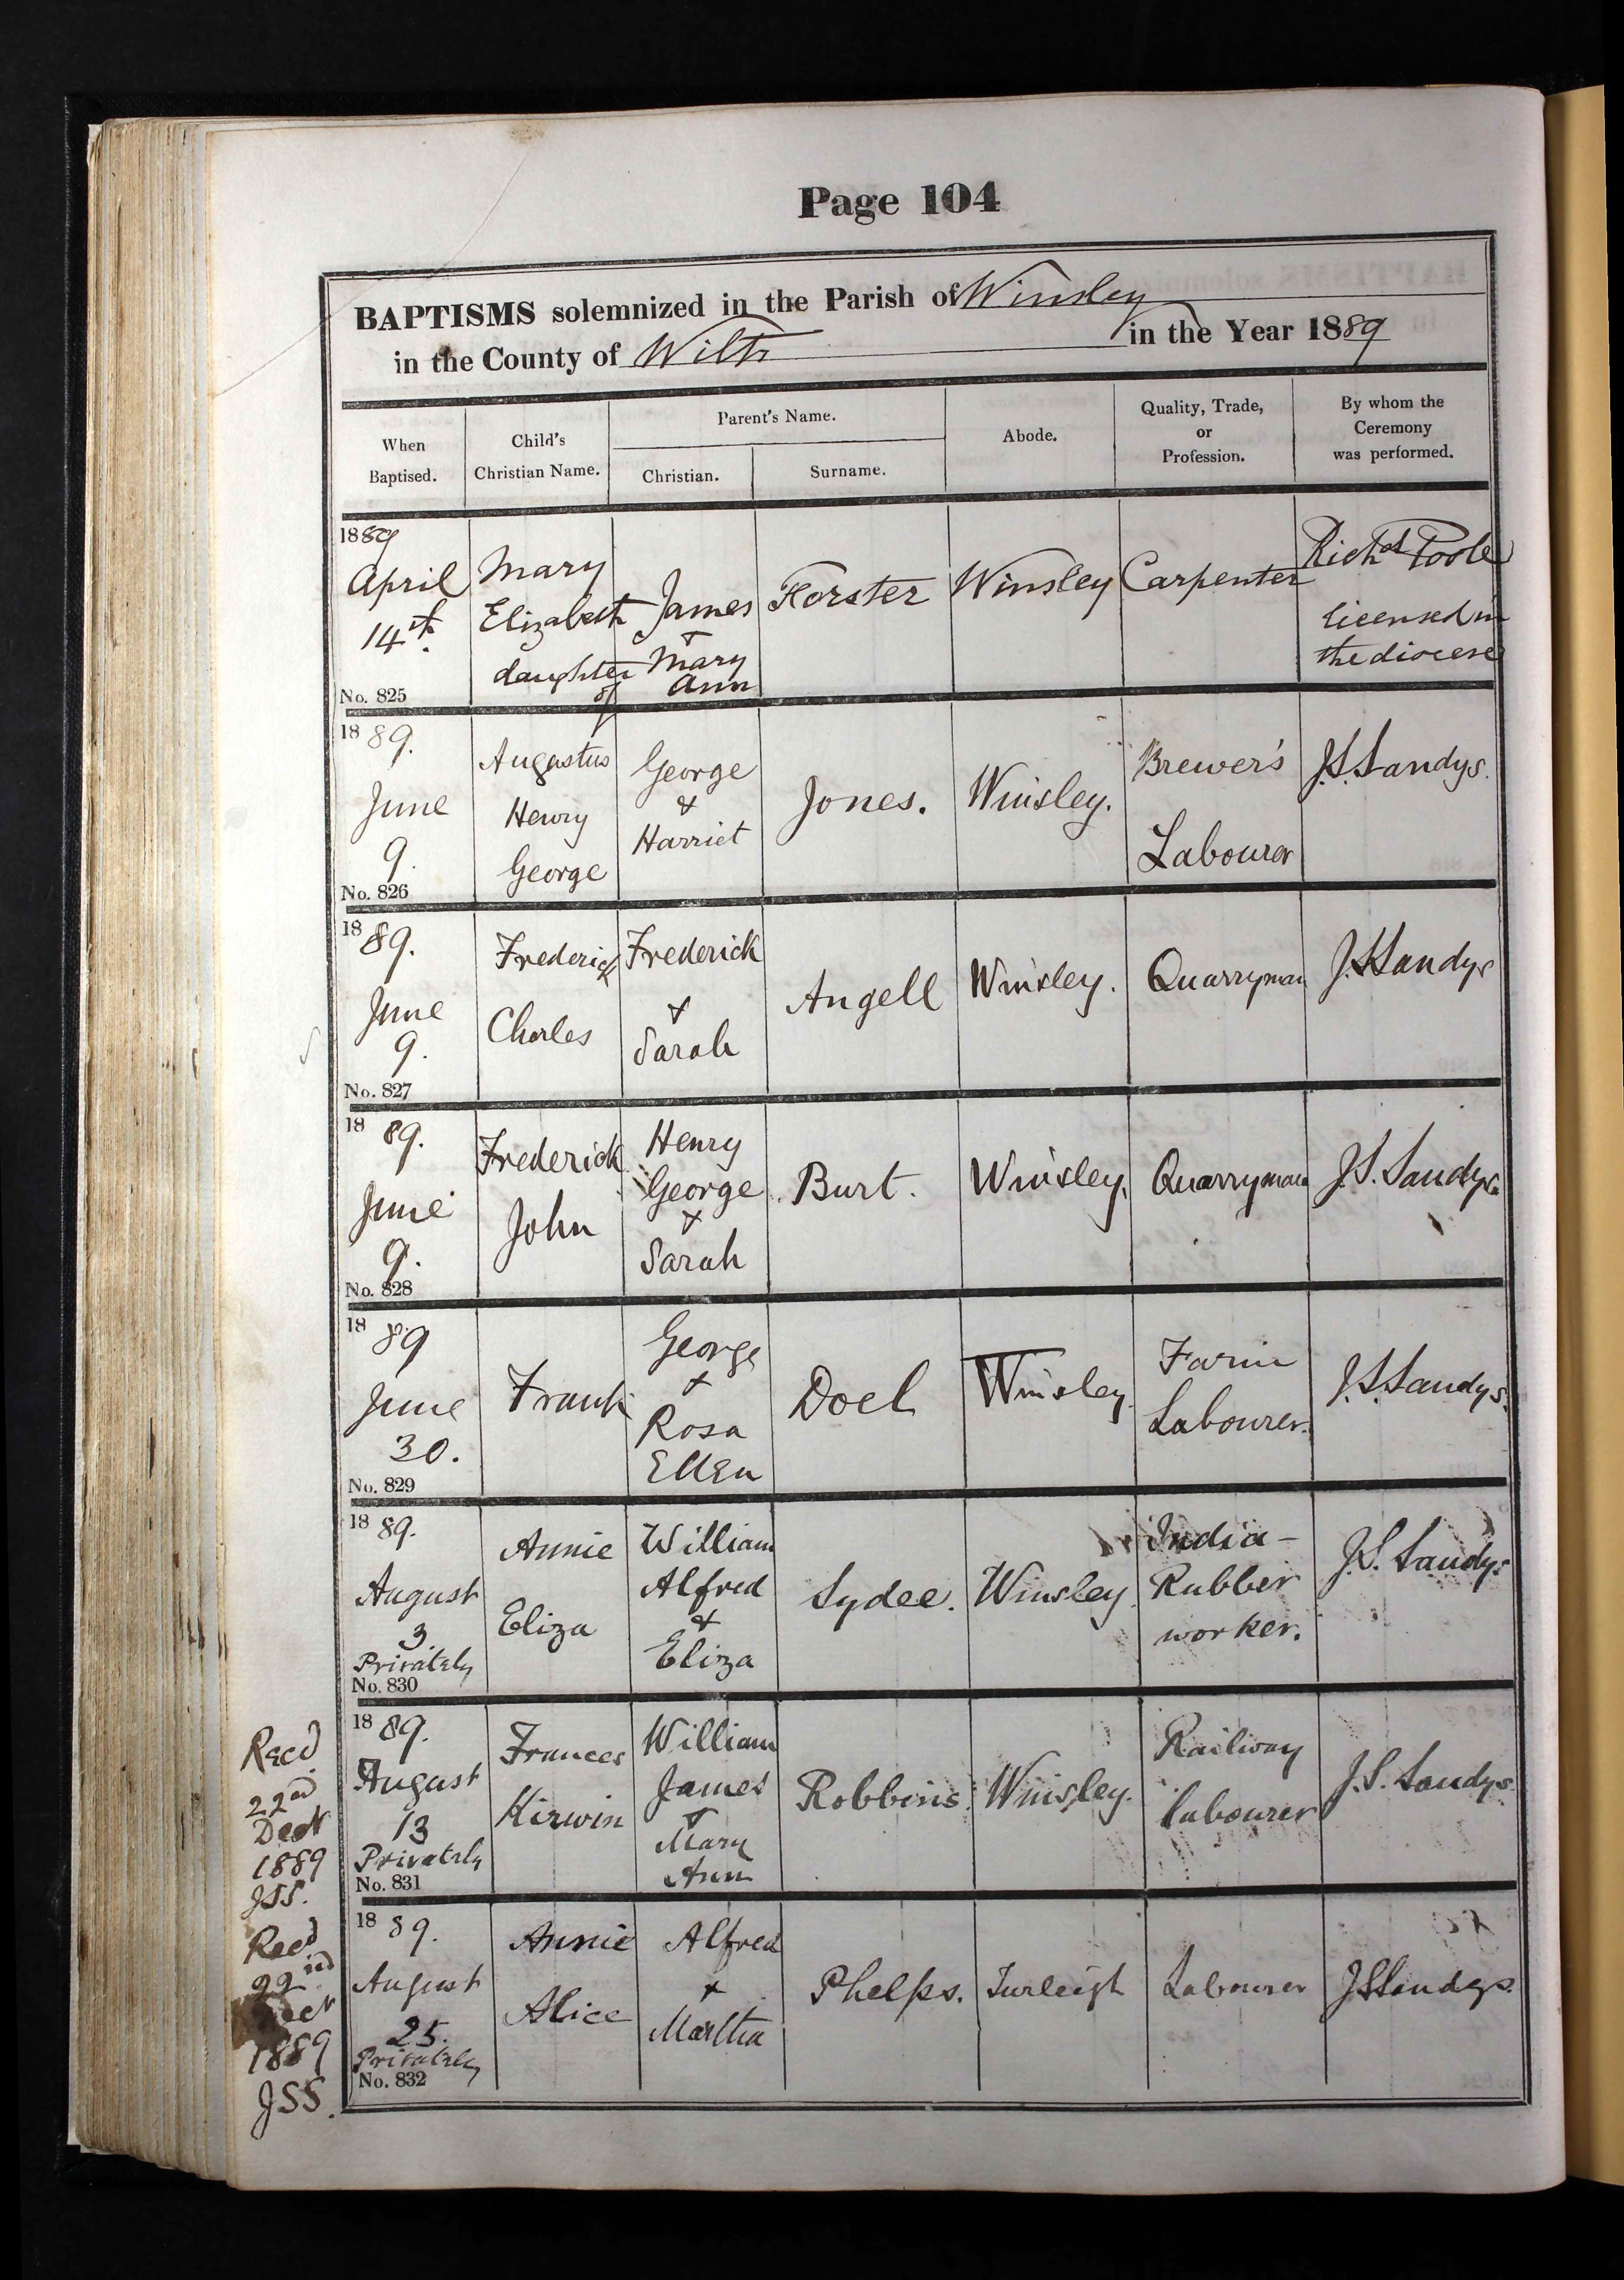 Page 104
BAPTISMS solemnized in the Parish of Winsley
in the County of Wilts in the Year 1889
When Baptised.
Child's Christian Name.
Parent's Name.
Christian.
Surname.
Abode.
Quality, Trade, or Profession.
By whom the Ceremony was performed.
1889
April
14th.
No. 825
Mary
Elizabeth
daughter
of
James
+
Mary
Ann
Forster
Winsley
Carpenter
Richd Poole
licensed in
the diocese
1889.
June
9.
No. 826
Augustus
Henry
George
George
&
Harriet
Jones.
Winsley.
Brewer's
Labourer
J.S. Sandys.
1889.
June
9.
No. 827
Frederick
Charles
Frederick
+
Sarah
Angell
Winsley.
Quarryman
J.S. Sandys
1889.
June
9.
No. 828
Frederick
John
Henry
George
+
Sarah
Burt.
Winsley.
Quarryman
J.S. Sandys.
1889
June
30.
No. 829
Frank
George
+
Rosa
Ellen
Doel
Winsley.
Farm
Labourer.
J.S. Sandys.
1889.
August
3.
Privately
No. 830
Annie
Eliza
William
Alfred
&
Eliza
Sydee.
Winsley.
India-
Rubber
worker.
J.S. Sandys.
1889.
August
13
Privately
No. 831
Frances
Kirwin
William
James
+
Mary
Ann
Robbins.
Winsley.
Railway
labourer
J.S. Sandys.
Recd
22nd
Decr
1889
JSS.
1889.
August
25.
Privately
No. 832
Annie
Alice
Alfred
+
Martha
Phelps.
Turleigh
Labourer
J.S. Sandys.
Recd
22nd
1889
JSS.